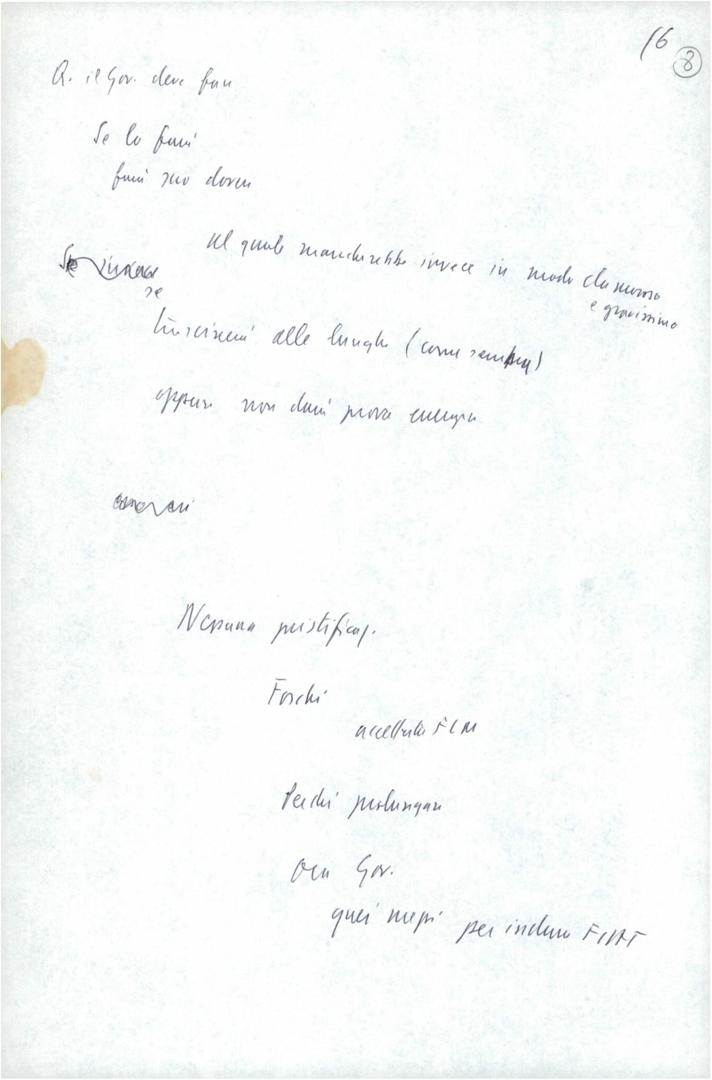 16
8
Q. il Gov. deve fare
Se lo farà
farà suo dovere
Al quale mancherebbe invece in modo clamoroso
e gravissimo
se
trascinerà alle lunghe (come sempre)
oppure non darà prova energia
Nessuna giustificaz.
Foschi
accettata FLM
Perché prolungare
Ora Gov.
quei mezzi per indurre FIAT